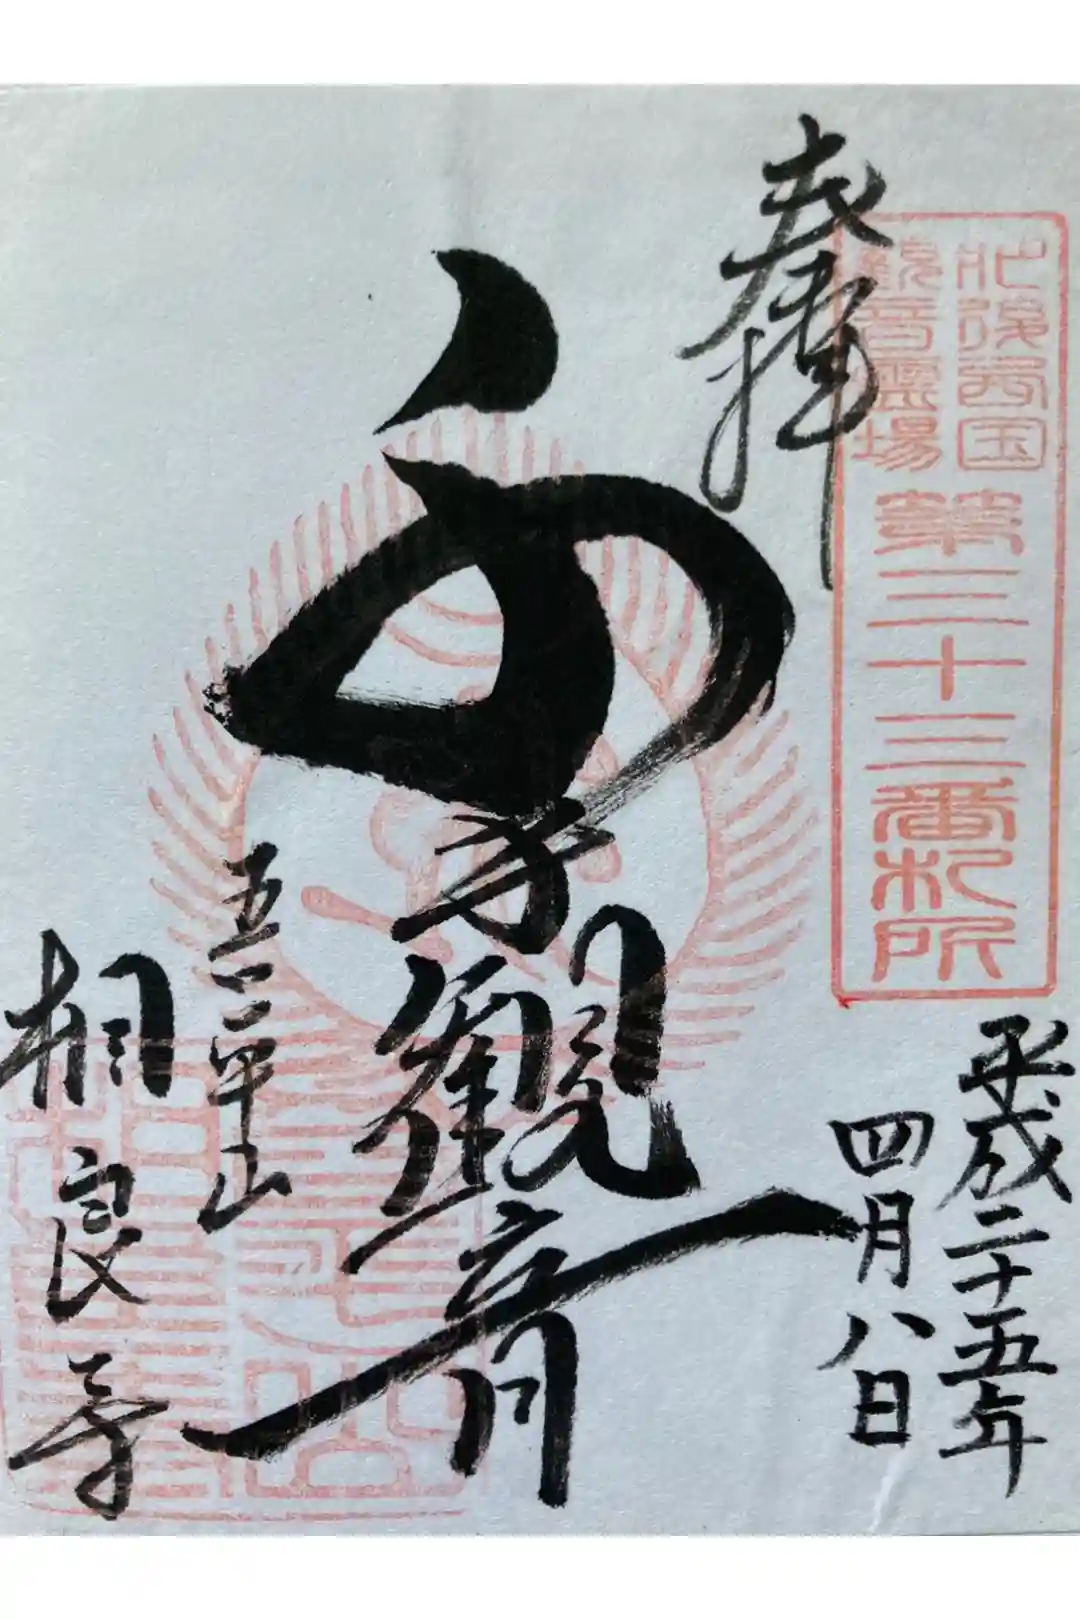 奉拝
肥後西国
観音霊場
第三十三番札所
平成二十五年
四月八日
千手觀音
吾平山
相良寺